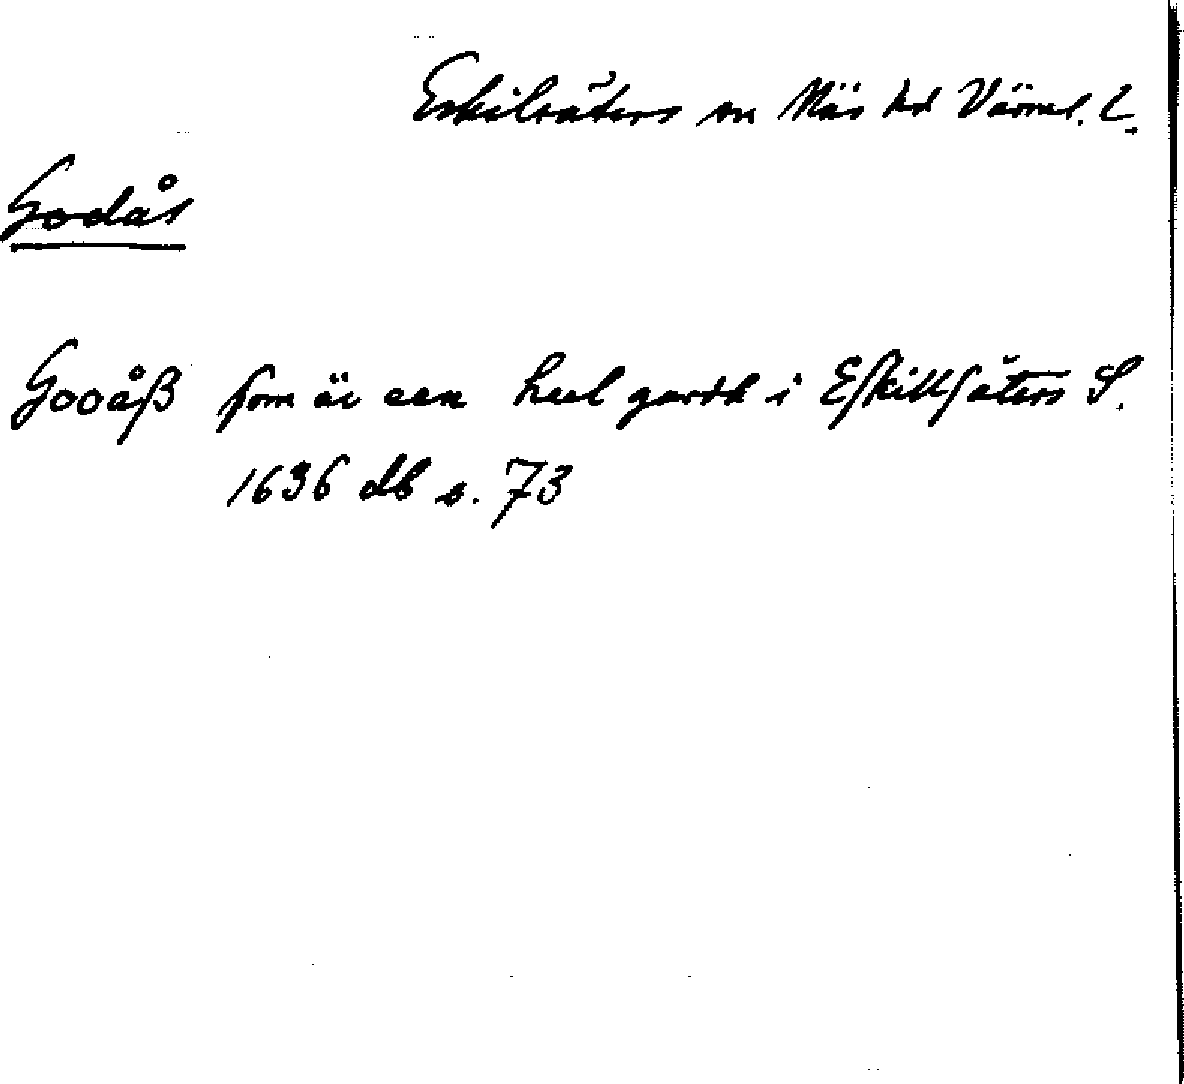 Eskilsäters sn Näs hd Värml. l.
Godås
Gooåß som är een heel gardh i Eskillsäters S.
1636 db s. 73